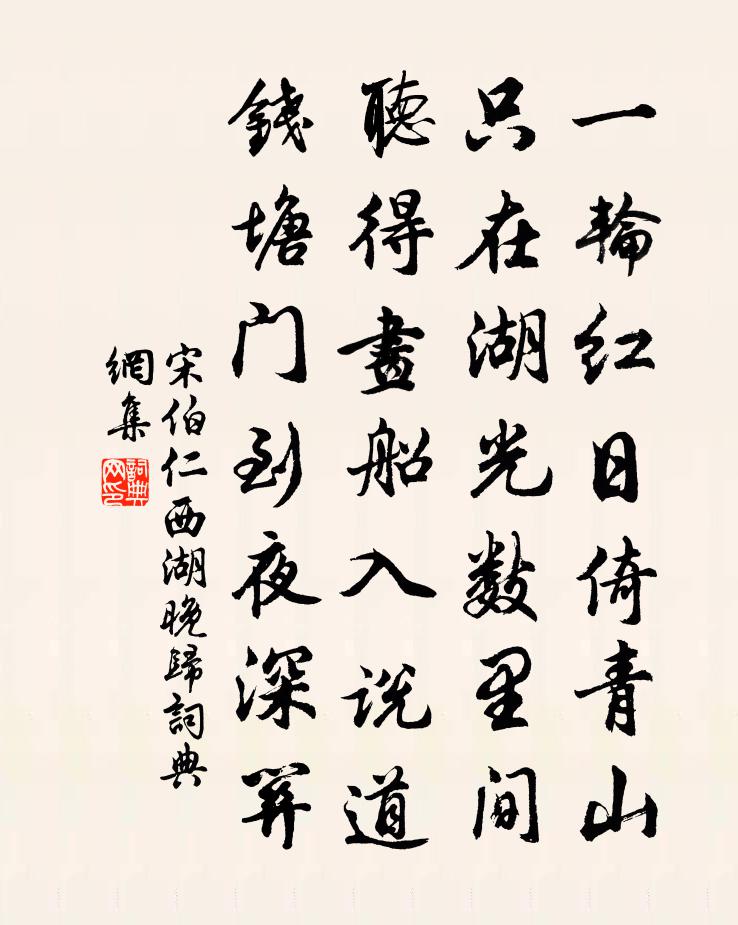 一輪紅日倚青山
只在湖光数里間
聽得畫船人説道
錢塘門到夜深關
宋伯仁西湖晚歸詞典
網集
詞典
网印